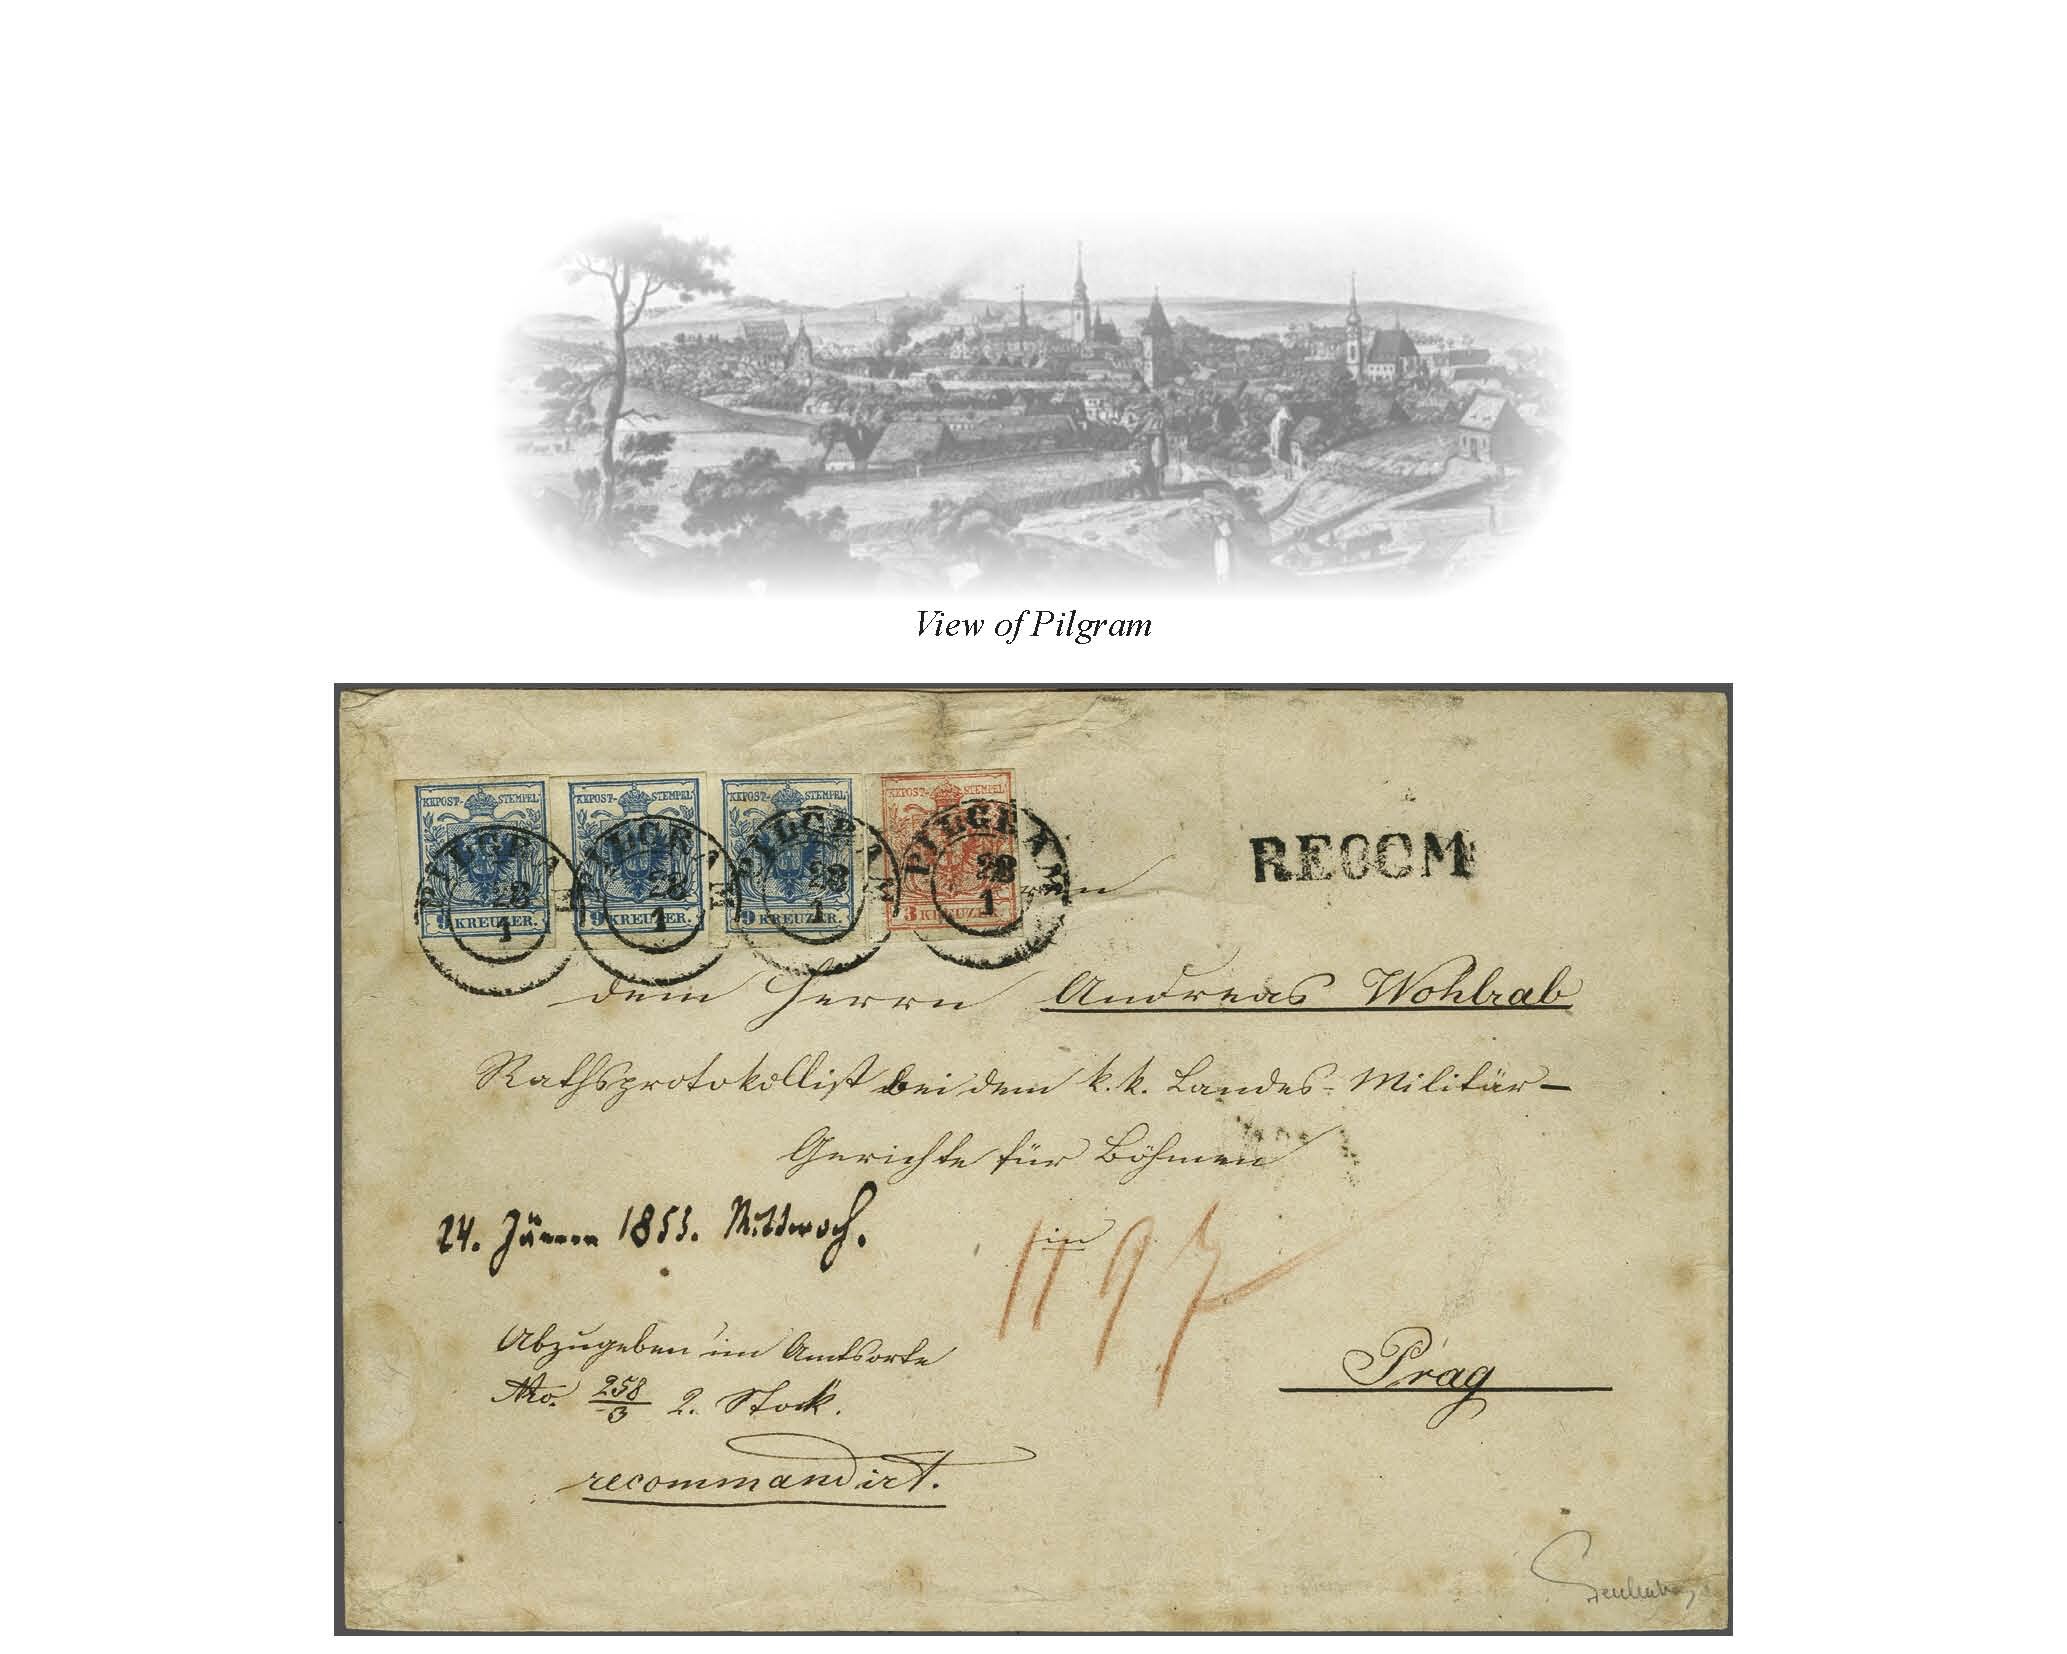 View of Pilgram
KKPOST-STEMPEL KKPOST-STEMPEL KKPOST-STEMPEL KKPOST-STEMPEL
PILGRAM PILGRAM PILGRAM PILGRAM
28 28 28 28
1 1 1 1
9 KREUZER. 9 KREUZER. 9 KREUZER. 3 KREUZER.
RECOM
dem Herrn Andreas Wohlrab
Rathsprotokollist bei dem k. k. Landes-Militär-
Gerichte für Böhmen
24. Jänner 1855. Mittwoch.
in
Abzugeben im Amtsorte
Nro. 258/3 2. Stock.
Prag
recommandirt.